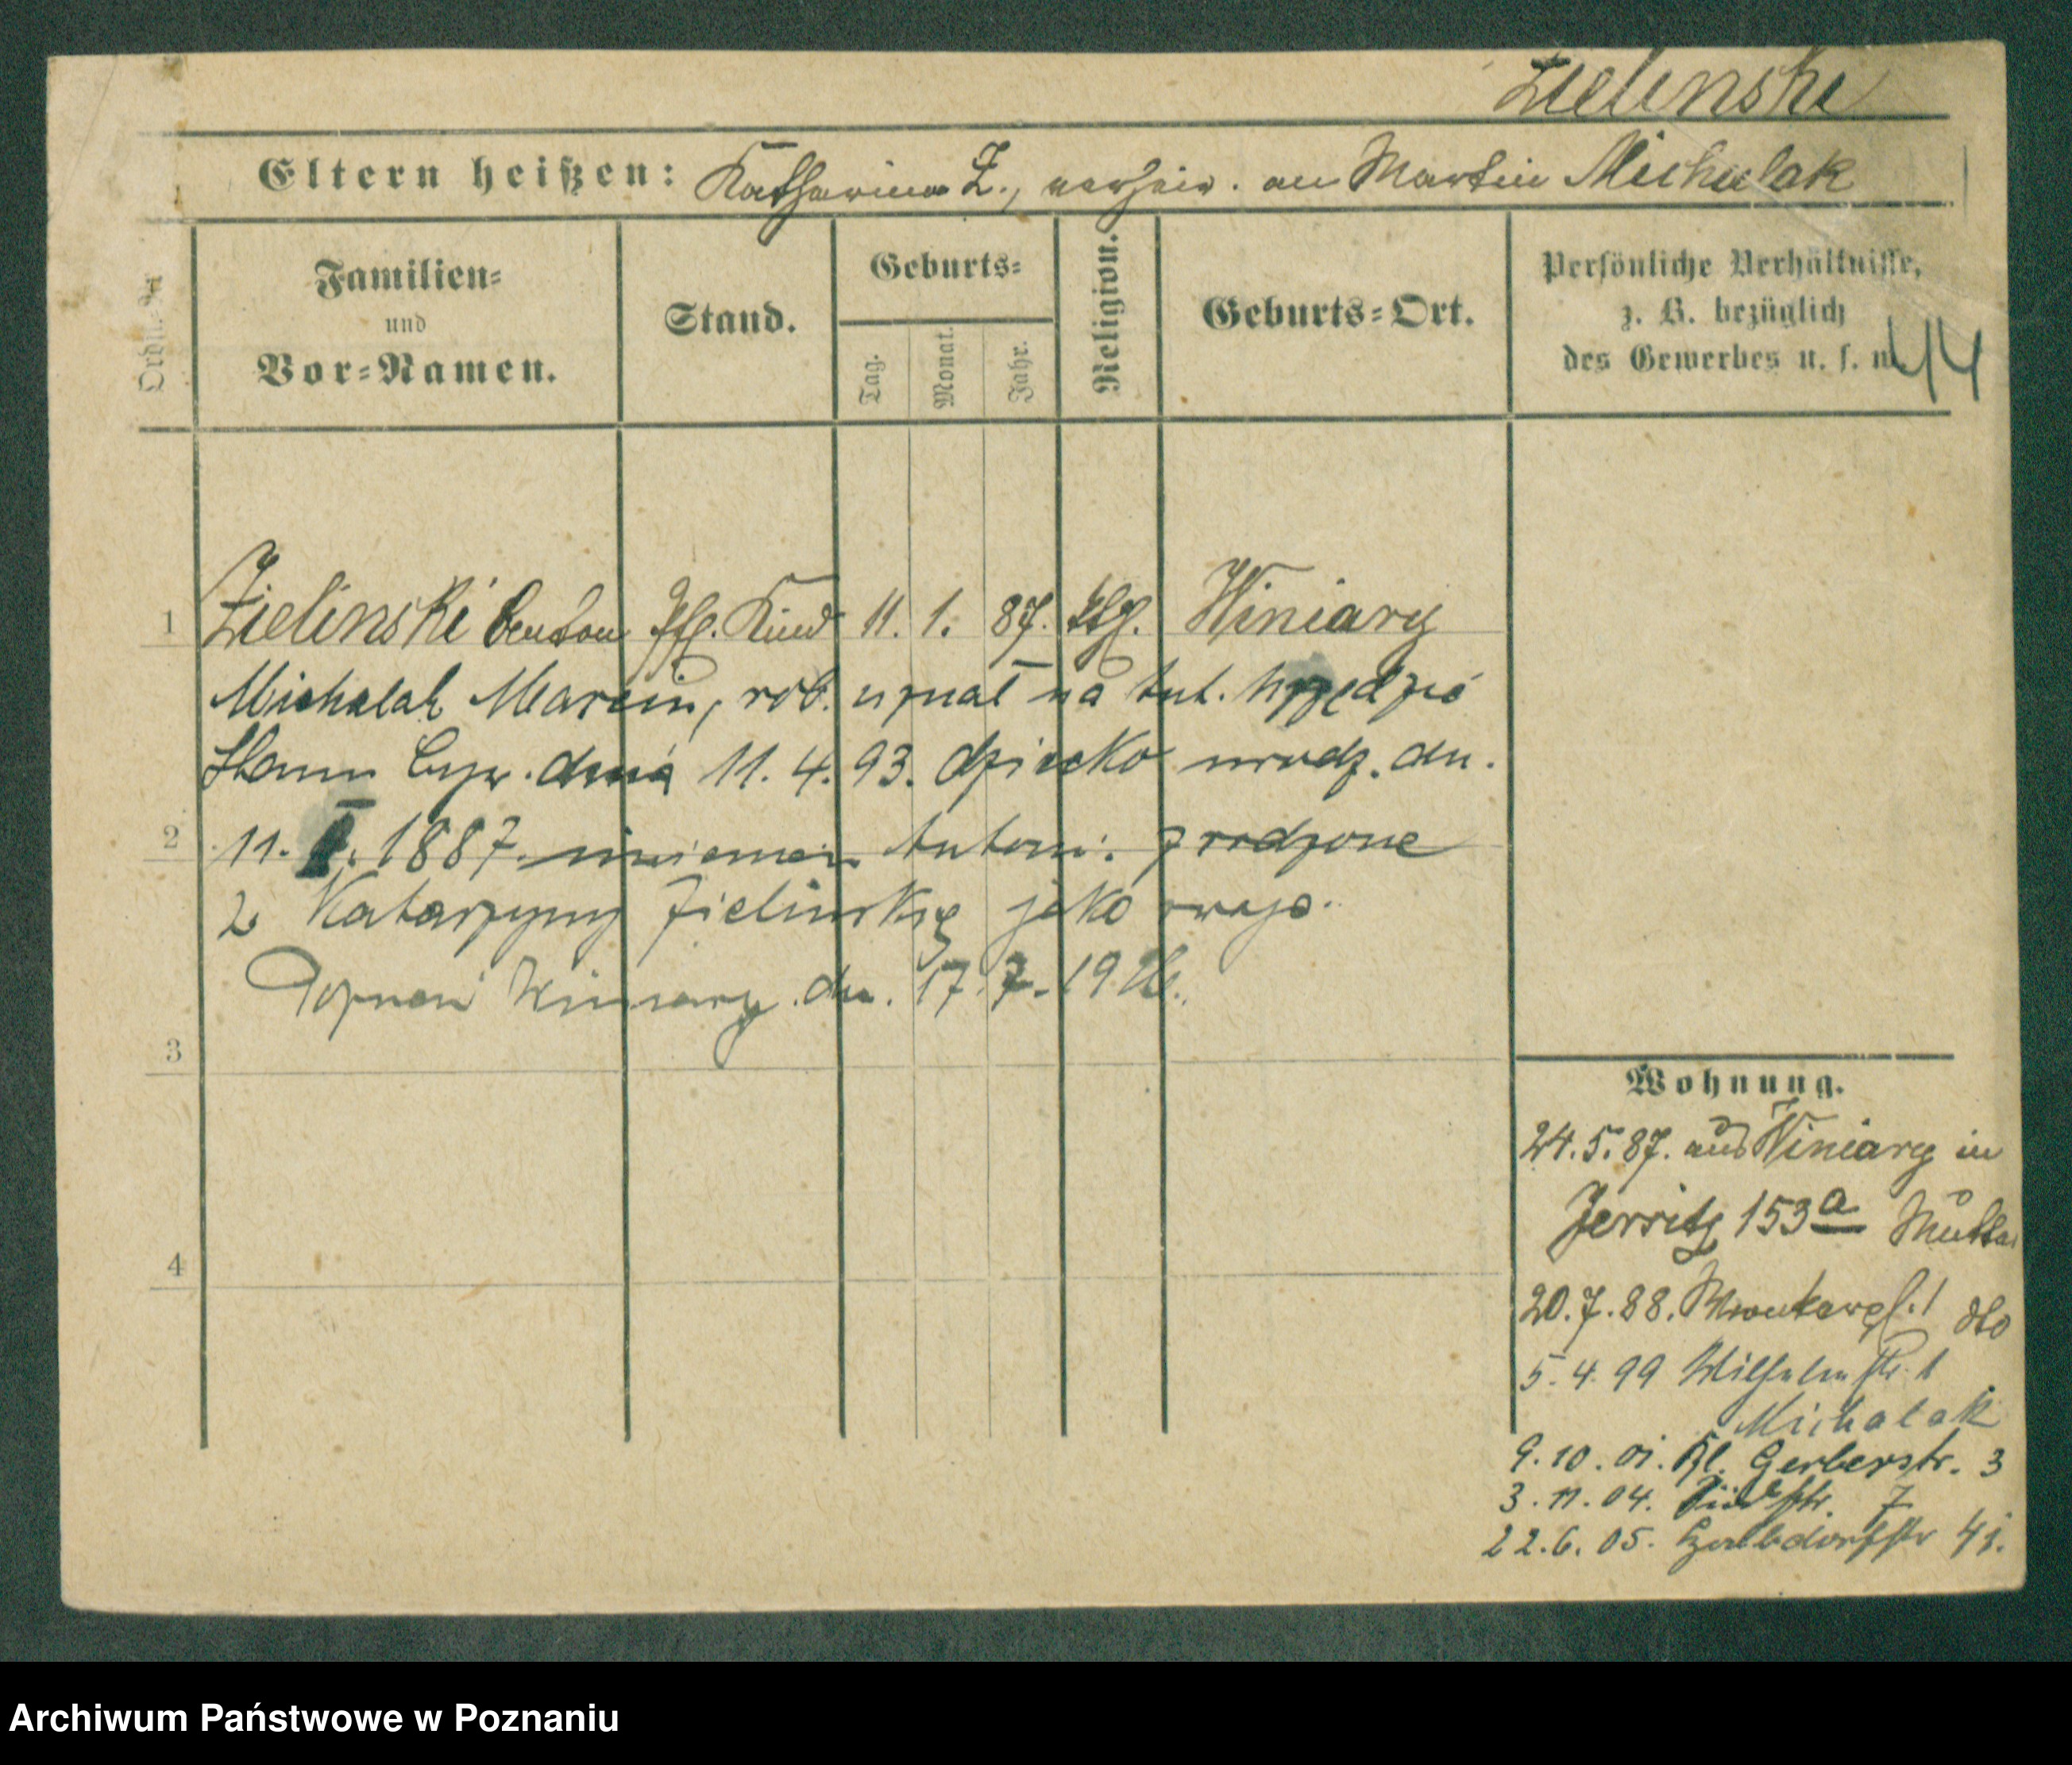 Zielinski
Eltern heißen: Katharina Z., verheir. an Martin Michalak
Ordn.-Nr
Familien-
und
Vor-Namen.
Stand.
Geburts-
Tag.
Monat.
Jahr.
Religion.
Geburts-Ort.
Persönliche Verhältnisse,
z. B. bezüglich
des Gewerbes u. s. w.
44
1 Zielinski Anton Pfl. Kind 11. 1. 87. kth. Winiary
Michalak Marcin, rob. uznał na tut. Urzędzie
Stanu Cyw. dnia 11. 4. 93. dziecko urodz. dn.
2
11. I. 1887. imieniem Antoni. zrodzone
z Katarzyny Zielinskiej jako swoje.
Poznań Winiary dn. 17.7.1926.
3
4
Wohnung.
24.5.87. aus Winiary in
Jersitz 153a Mutter
20.7.88. 1 dto
5.4.99 Wilhelmstr. 1
Michalak
9.10.01. Kl. Gerberstr. 3
3.11.04. 7
22.6.05. 41.
Archiwum Państwowe w Poznaniu